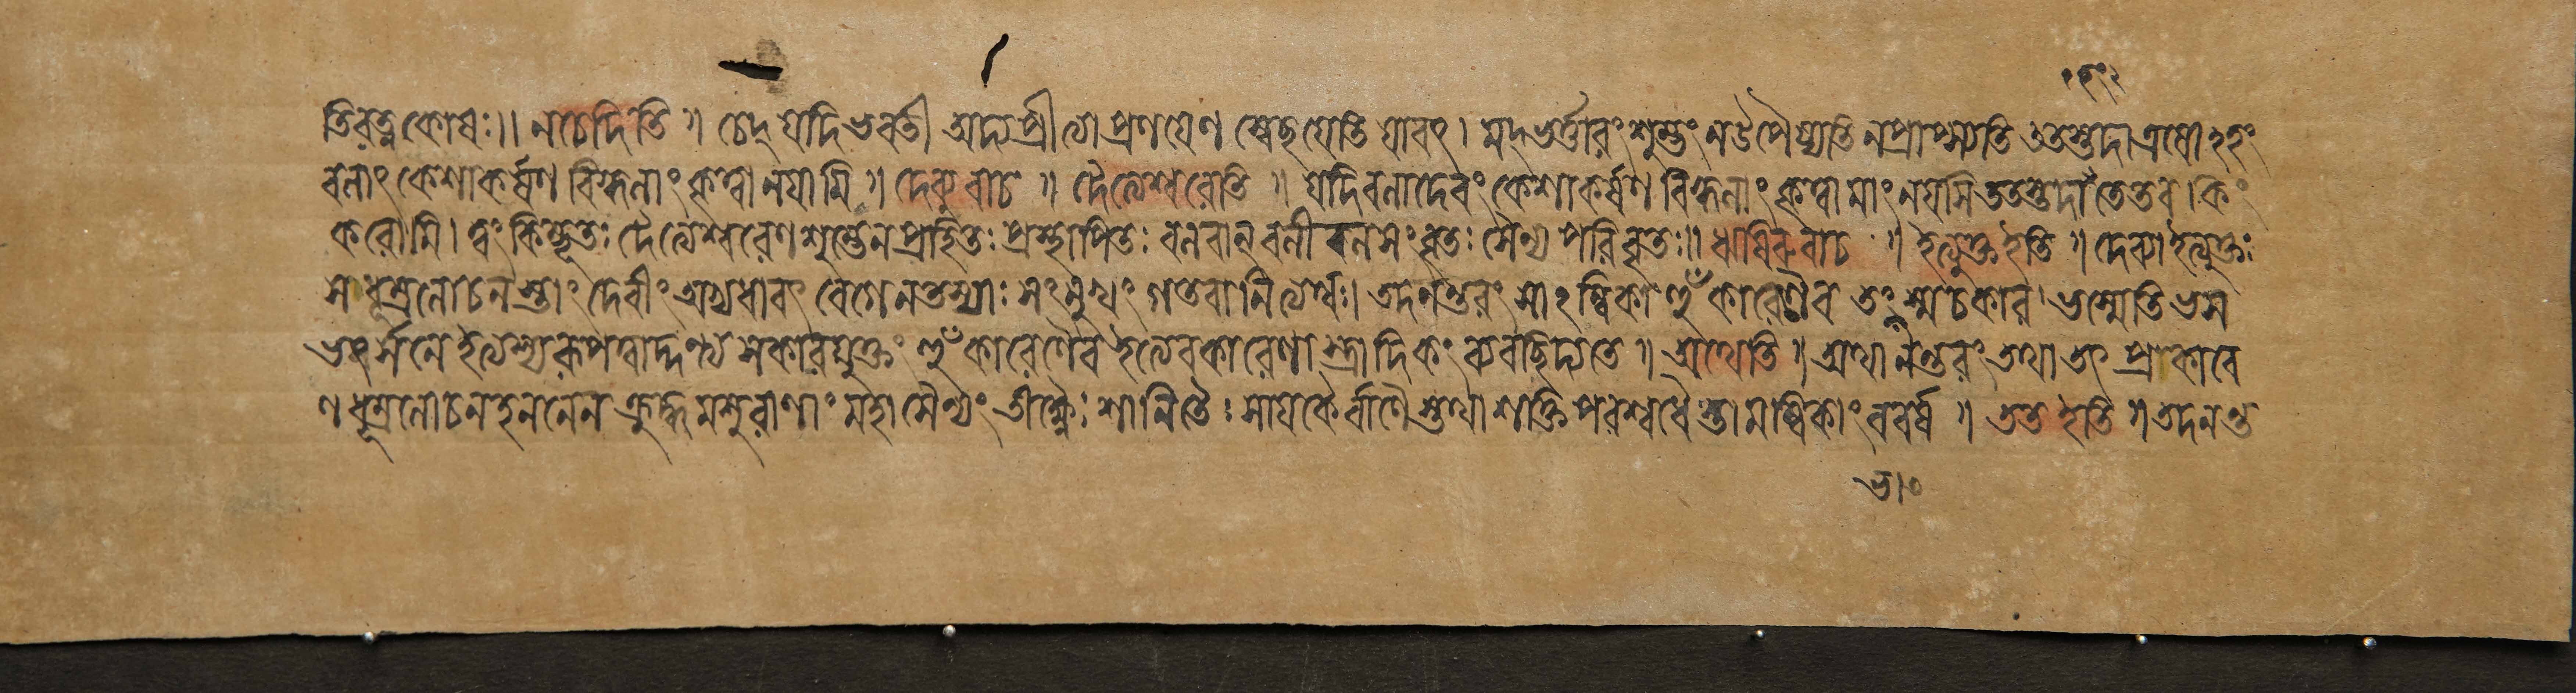 তিরত্নকোষঃ॥ নচেদিতি ॥ চেদ্ যদিভবতী অদ্যপ্রীত্যা প্রণযেণ স্বেছযেতি যাবৎ। মদ্ভর্ত্তারং শুম্ভং নউপৈষ্যতি নপ্রাপ্স্যতি ততস্তদা এষোঽহং
বলাৎ কেশাকর্ষণ বিহ্বলাং কৃত্বা নযামি ॥ দেব্যুবাচ ॥ দৈত্যেশ্বরেতি ॥ যদিবলাদেবং কেশাকর্ষণ বিহ্বলাং কৃত্বা মাং নযসি ততস্তদা তেতব কিং
করোমি। ত্বং কিম্ভূতঃ দৈত্যেশ্বরেণ শুম্ভেনপ্রহিতঃ প্রস্থাপিতঃ বলবান্ বলী বলসংবৃতঃ সৈন্য পরিবৃতঃ॥ ঋষিরুবাচ ॥ ইত্যুক্তইতি ॥ দেব্যা ইত্যুক্তঃ
স ধূম্রলোচনস্তাং দেবীং অভ্যধাবৎ বেগেনতস্যাঃ সংমুখং গতবানিত্যর্থঃ। তদনন্তরং সাঽম্বিকা হুঁকারেণৈব তং ভস্মচকার। ভস্মেতি ভস
ভর্ৎসনে ইত্যস্যরূপত্বাদ্দন্ত্য সকারযুক্তং হুঁকারেণৈব ইত্যেবকারেণাস্ত্রাদিকং ব্যবছিদ্যতে ॥ অথেতি ॥ অথানন্তরং তথা তৎ প্রকারে
ণ ধূম্রলোচনহননেন ক্রুদ্ধমসুরাণাং মহাসৈন্যং তীক্ষ্ণৈঃ শানিতৈঃ সাযকৈর্বাণৈস্তথা শক্তিপরশ্বধৈস্তামম্বিকাং ববর্ষ ॥ তত ইতি ॥ তদনন্ত